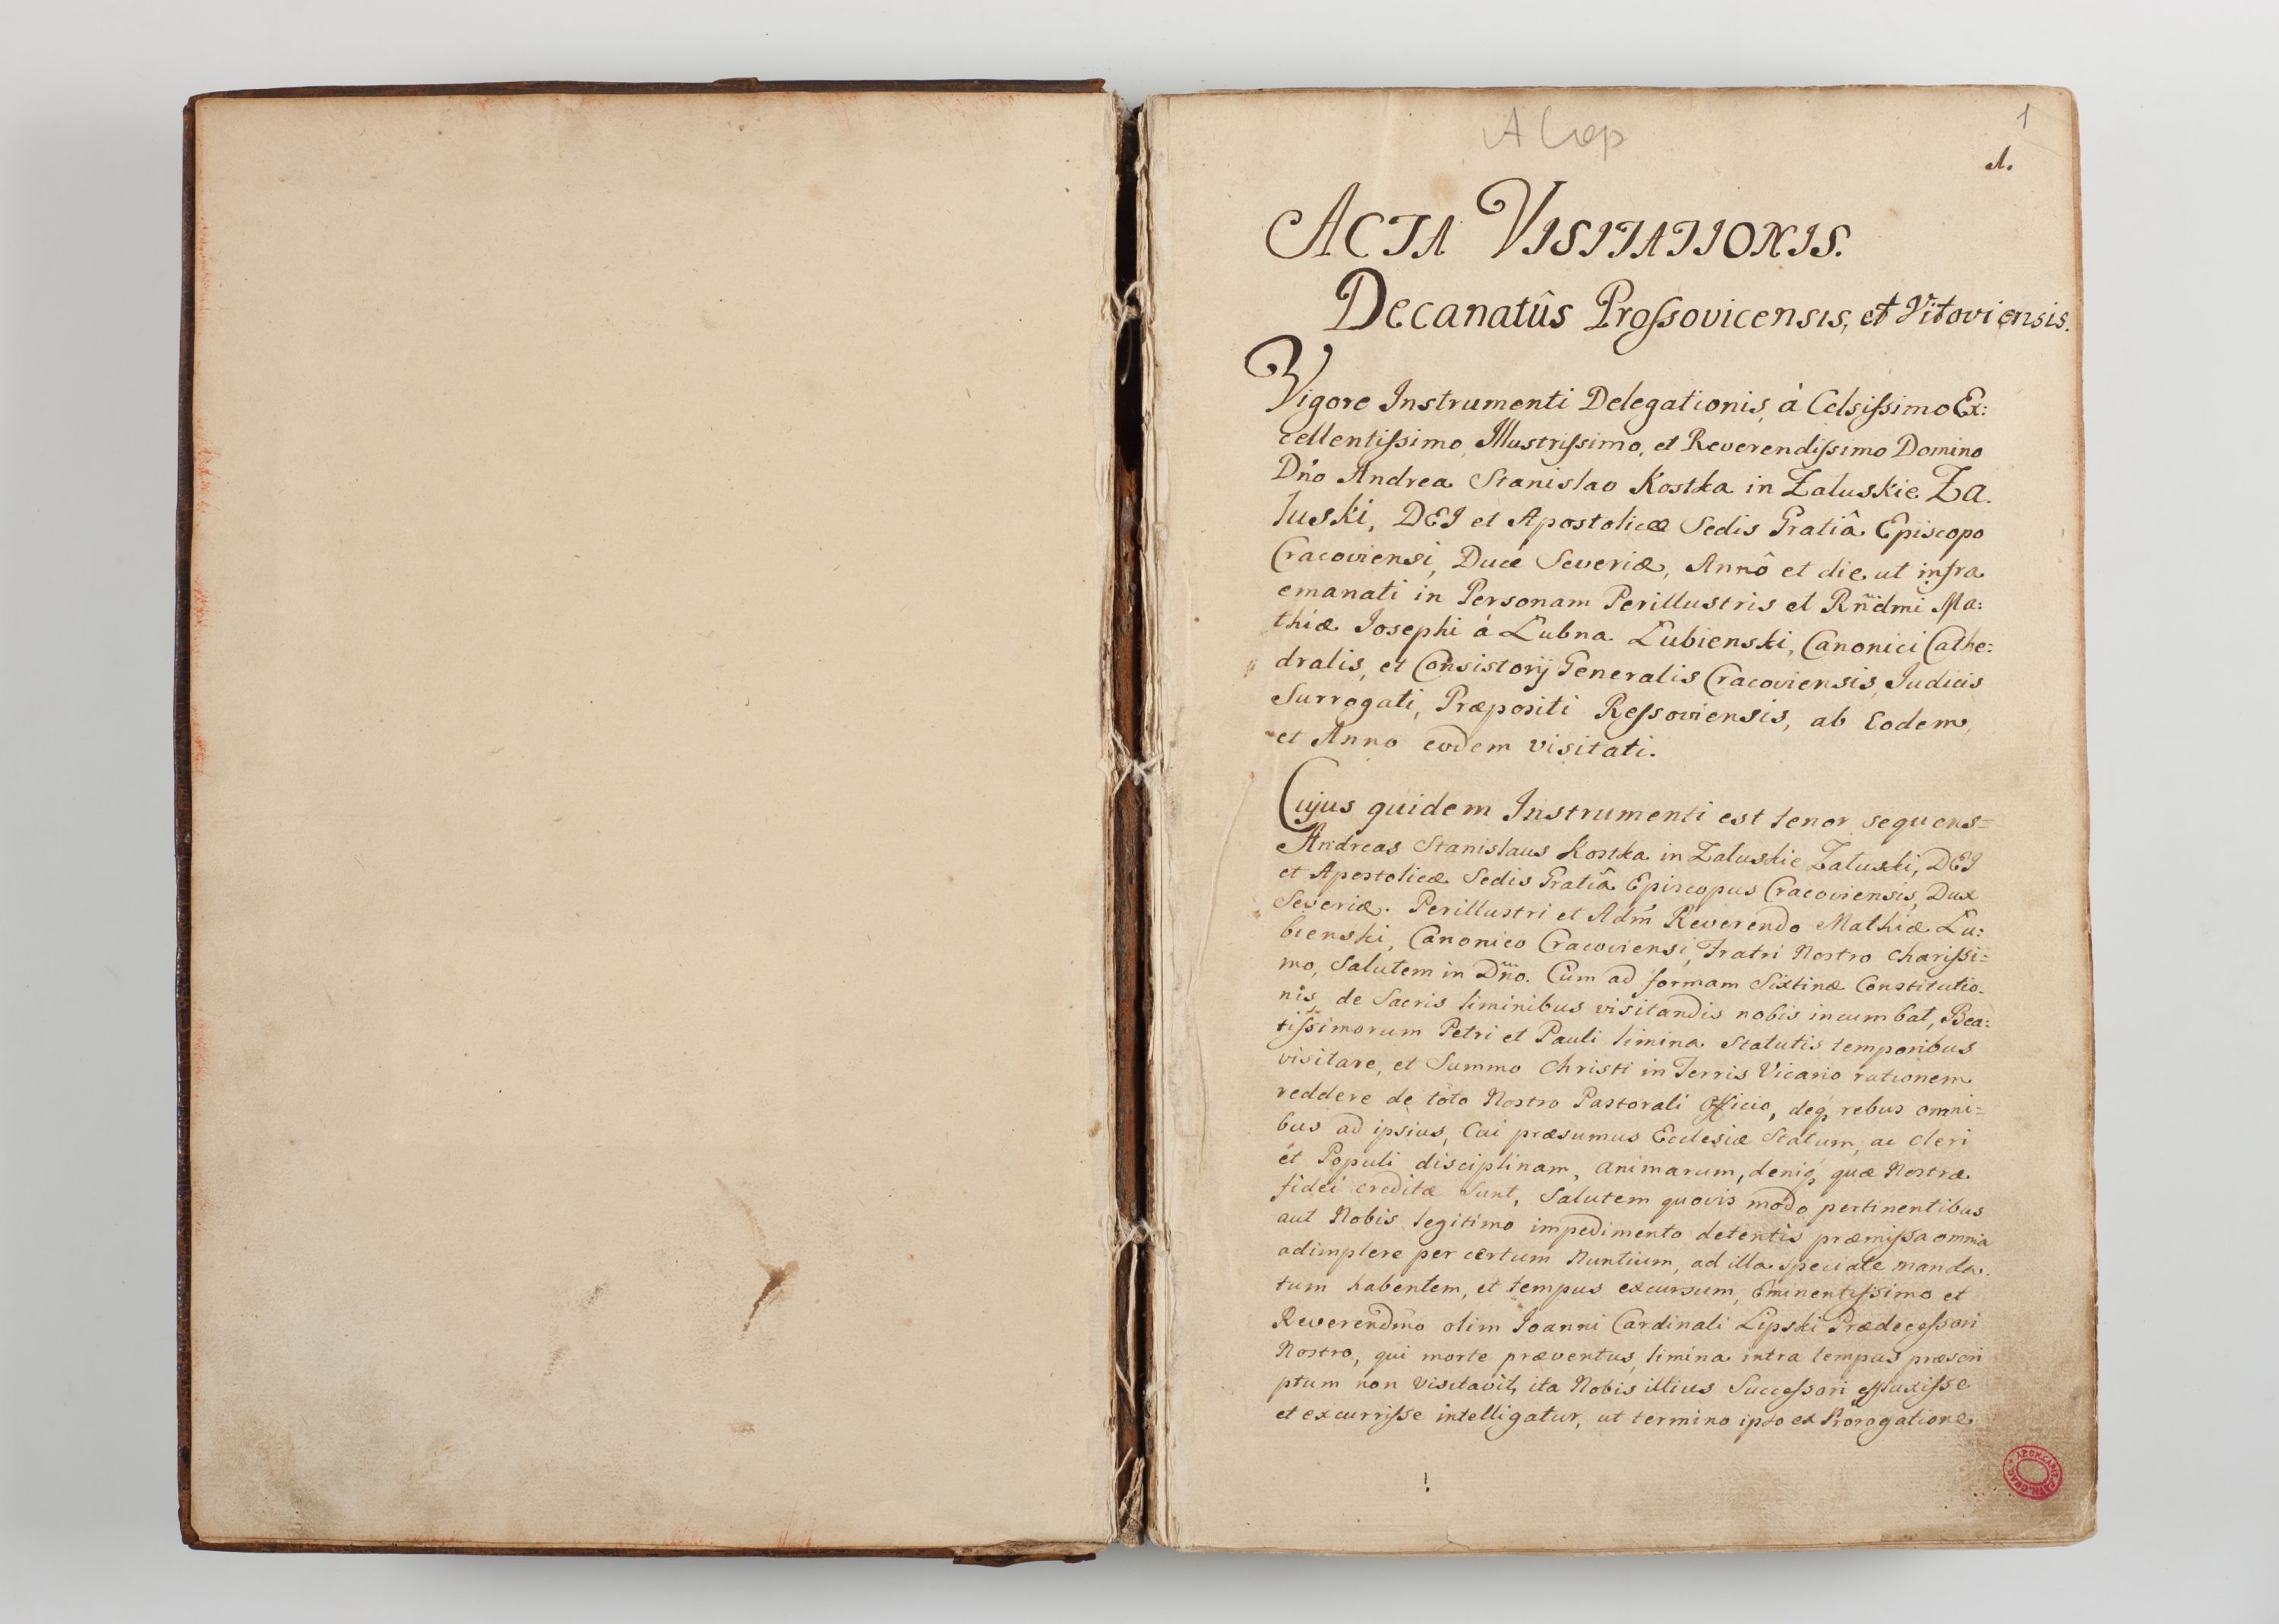 1
1.
ACTA VISITATIONIS.
Decanatûs Proſsovicensis, et Vitoviensis.
Vigore Instrumenti Delegationis, à Celsiſsimo Ex:
cellentiſsimo, Illustriſsimo, et Reverendiſsimo Domino
Dno Andrea Stanislao Kostka in Załuskie Za.
łuski, DEI et Apostolicæ Sedis Gratiâ Episcopo
Cracoviensi, Duce Severiæ, Annô et die ut infra
emanati in Personam Perillustris et Rndmi Ma:
thiæ Josephi á Łubna Łubienski, Canonici Cathe:
dralis, et Consistorij Generalis Cracoviensis, Judicis
Surrogati, Præpositi Reſsoviensis, ab Eodem,
et Anno eodem visitati.
Cujus quidem Instrumenti est tenor sequens=
Andreas Stanislaus Kostka in Załuskie Załuski, DEI
et Apostolicæ Sedis Gratiâ Episcopus Cracoviensis, Dux
Severiæ. Perillustri et Adm Reverendo Mathiæ Łu:
bienski, Canonico Cracoviensi, Fratri Nostro Chariſsi=
mo, Salutem in Dno. Cum ad formam Sixtinæ Constitutio.
nis, de Sacris liminibus visitandis nobis incumbat, Bea:
tiſsimorum Petri et Pauli limina Statutis temporibus
visitare, et Summo Christi in Terris Vicario rationem
reddere de toto Nostro Pastorali Officio, deq, rebus omni=
bus ad ipsius, Cui præsumus Ecclesiæ Statum, ac Cleri
et Populi disciplinam, animarum, deniq, quæ Nostræ
fidei creditæ sunt, Salutem quovis modo pertinentibus
aut Nobis legitimo impedimento detentis præmiſsa omnia
adimplere per certum Nuntium, ad illa speciale manda.
tum habentem, et tempus excursum, Eminentiſsimo et
Reverendmo olim Joanni Cardinali Lipski Prædeceſsori
Nostro, qui morte præventus, limina intra tempus præscri
ptum non visitavit, ita Nobis illius Succeſsori effluxiſse
et excurriſse intelligatur, ut termino ipso ex Prorogatione